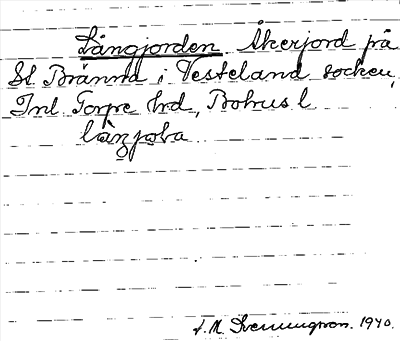 Långjorden. Åkerjord på
St Brännd i Vesteland socken,
Inl Torpe hrd, Bohusl
långjola
J. M. Svenningsson. 1940.